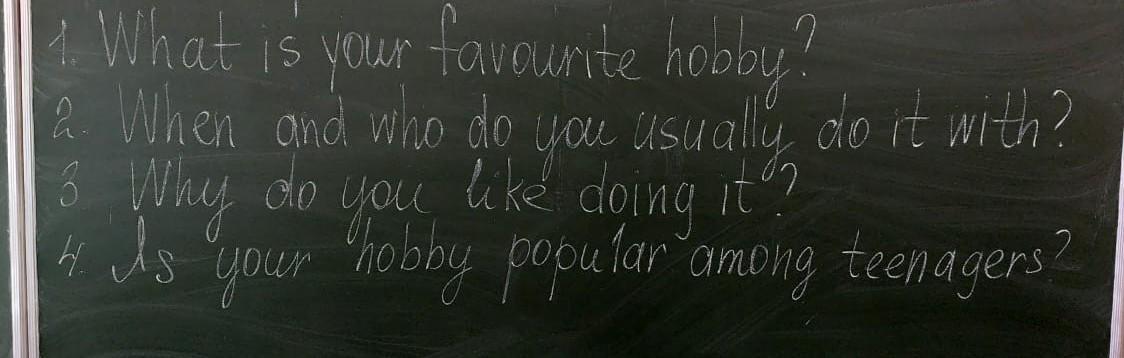 1. What is your favourite hobby?
2. When and who do you usually do it with?
3 Why do you like doing it?
4. Is your hobby popular among teenagers?